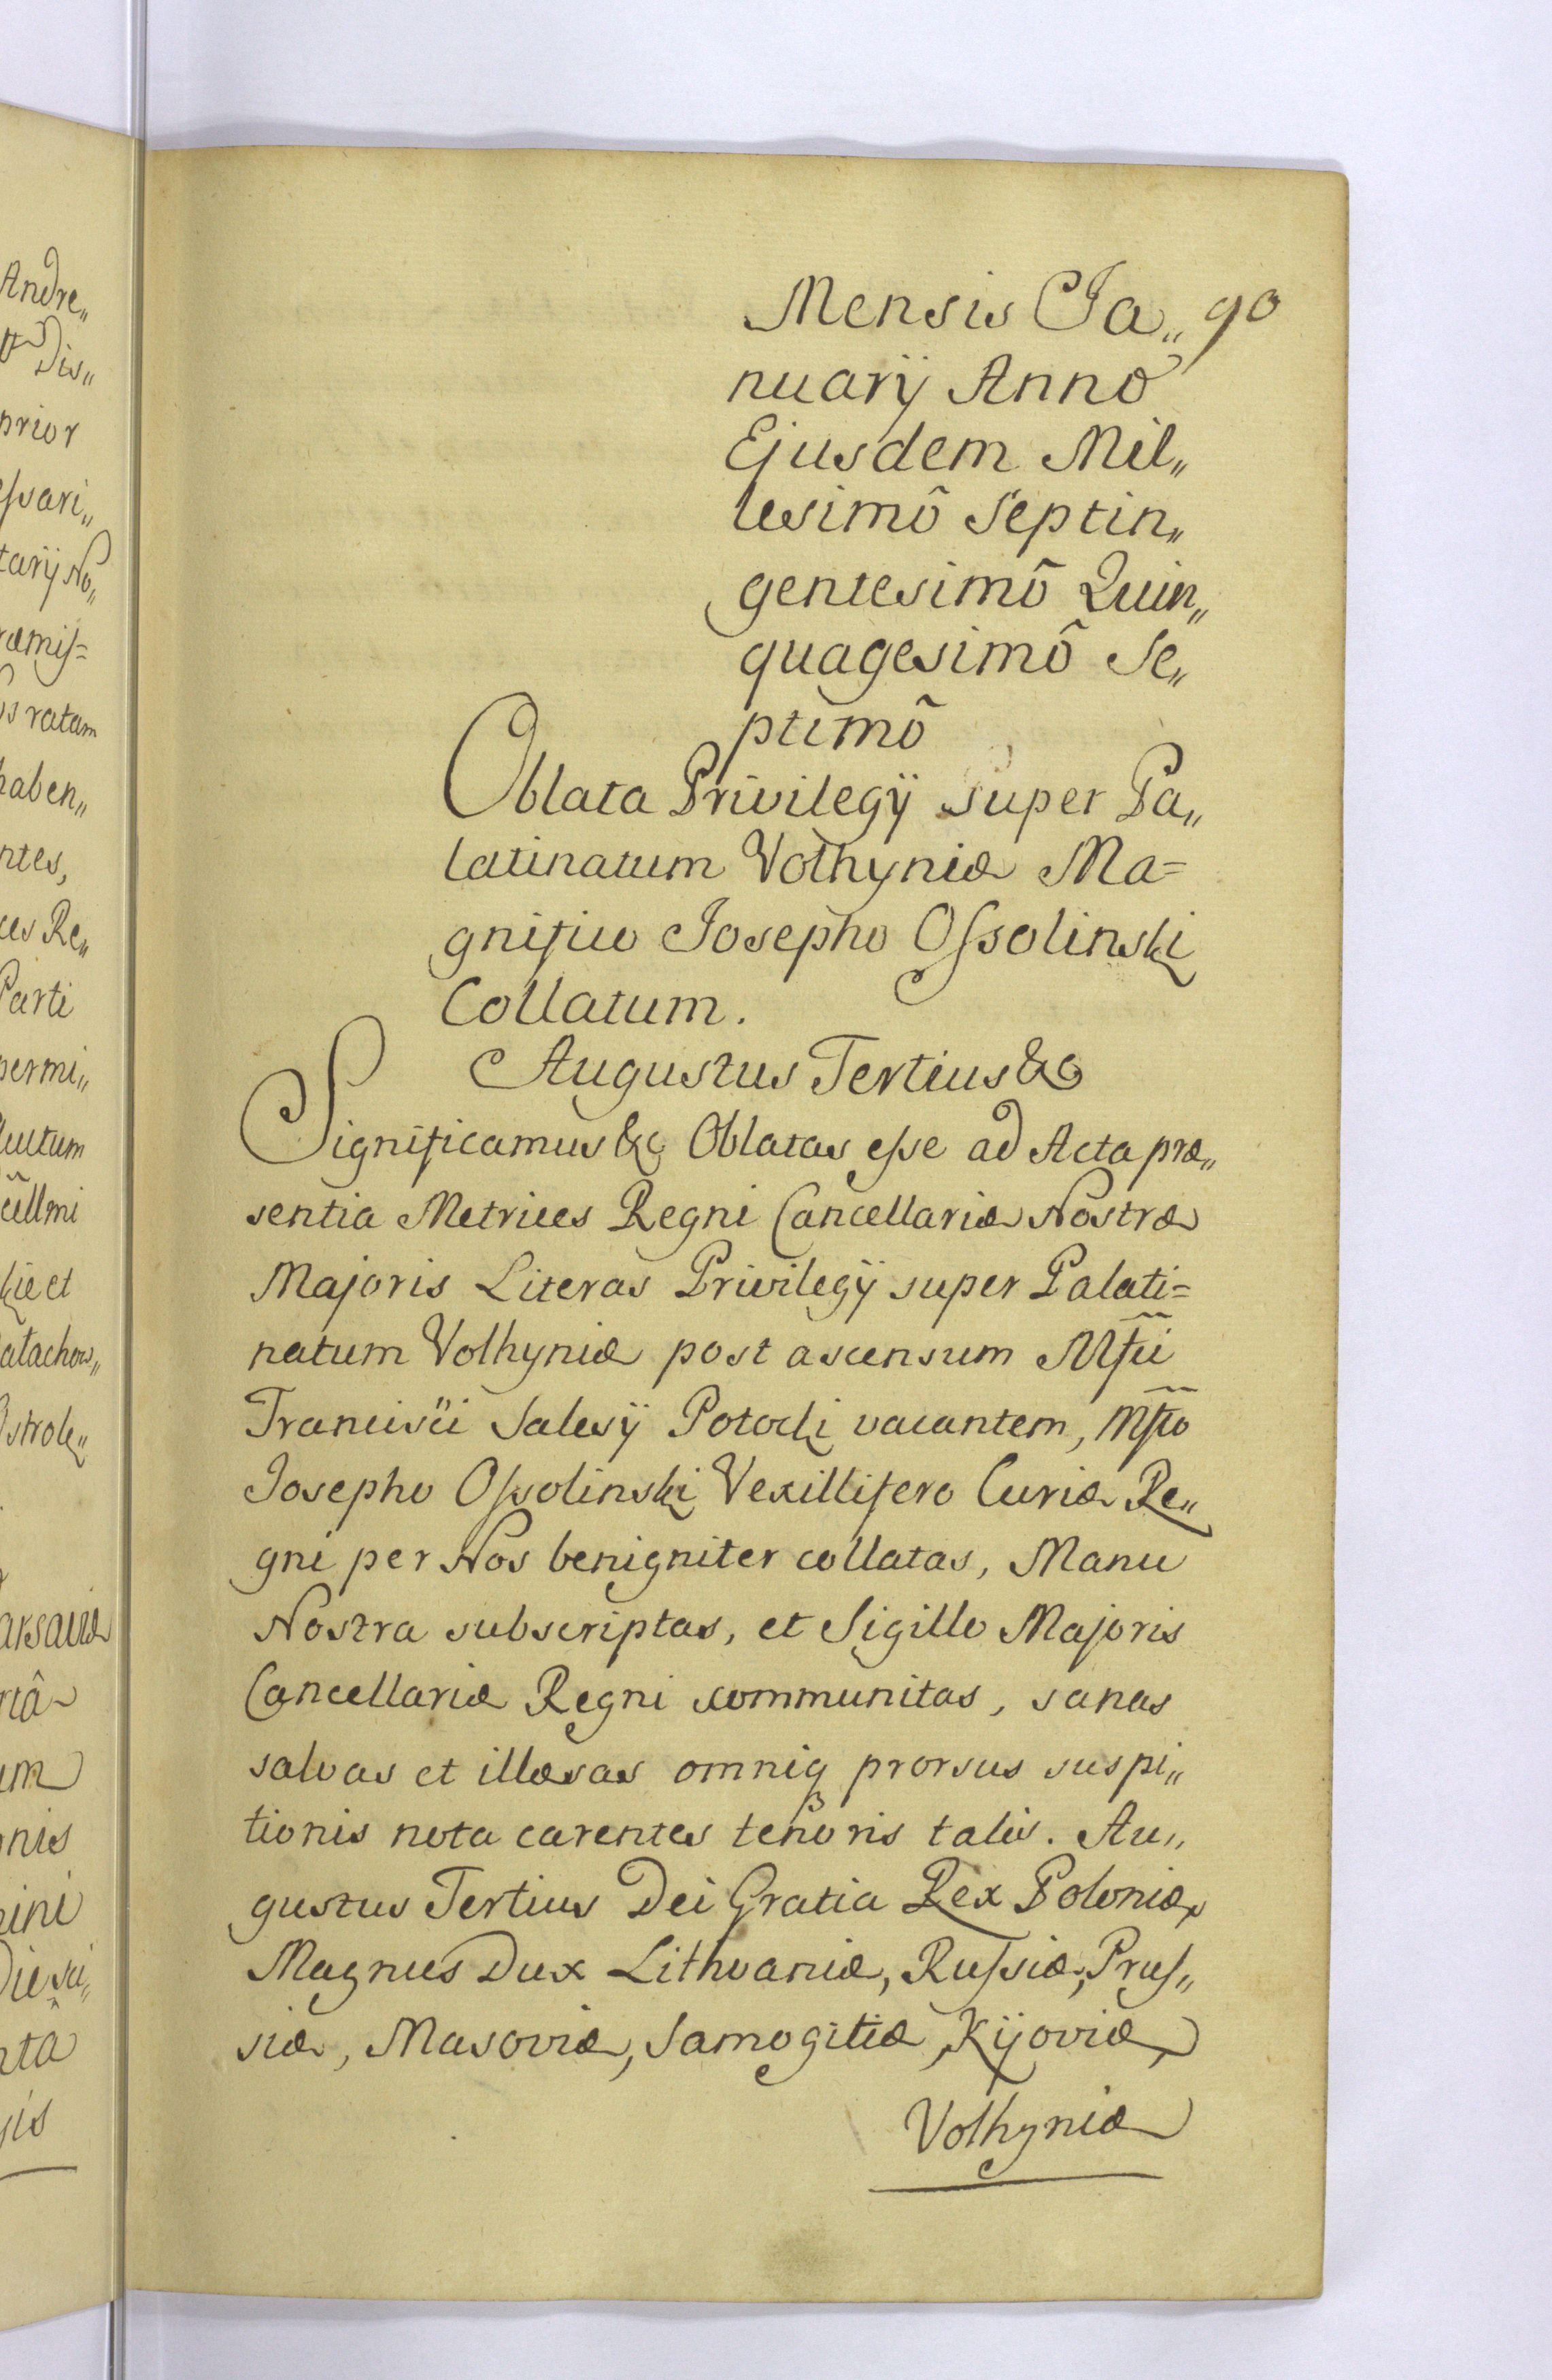 Andre„
Dis„
prior
essari„
tarÿ No„
ræmis=
s ratam
haben„
ntes,
ces Re„
Parti
permi„
cellmi
kie et
atachow„
Ostrole„
arsaviæ
um
onis
nta
Mensis Ja„ 90
nuarÿ Anno
Ejusdem Mil„
lesimõ Septin„
gentesimõ Quin„
quagesimõ Se„
ptimõ
Oblata Privilegÿ super Pa„
latinatum Volhyniæ Ma=
gnifico Josepho Ossolinski
Collatum.
Augustus Tertius &c
Significamus &c Oblatas esse ad Acta præ„
sentia Metrices Regni Cancellariæ Nostræ
Majoris Literas Privilegÿ super Palati=
natum Volhyniæ post ascensum Mfci
Francisci Salesÿ Potocki vacantem, Mfco
Josepho Ossolinski Vexillifero Curiæ Re„
gni per Nos benigniter collatas, Manu
Nostra subscriptas, et Sigillo Majoris
Cancellariæ Regni communitas, sanas
salvas et illæsas omniq prorsus suspi„
tionis nota carentes tenoris talis. Au„
gustus Tertius Dei Gratia Rex Poloniæ,
Magnus Dux Lithvaniæ, Russiæ, Prus„
siæ, Masoviæ, Samogitiæ, Kijoviæ,
Volhyniæ